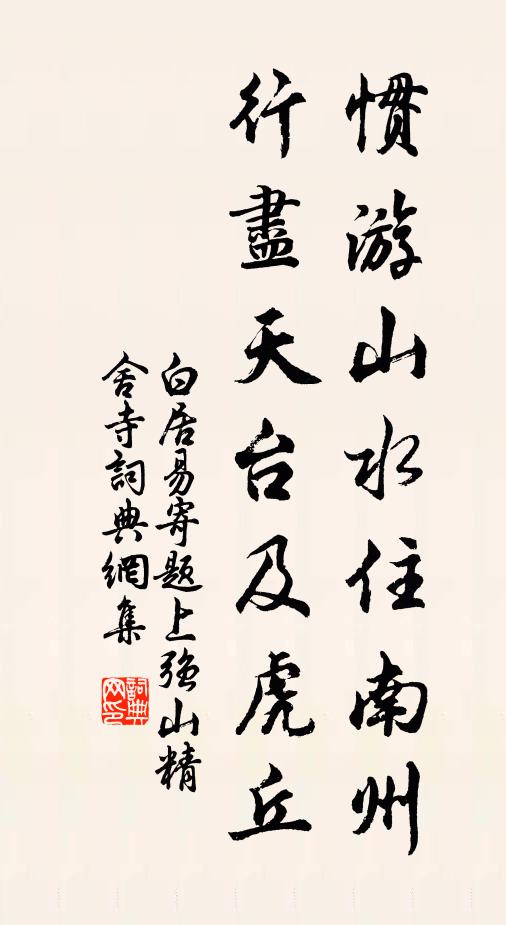 慣游山水住南州
行盡天台及虎丘
白居易寄题上強山精
舍寺詞典網集
詞典
网印